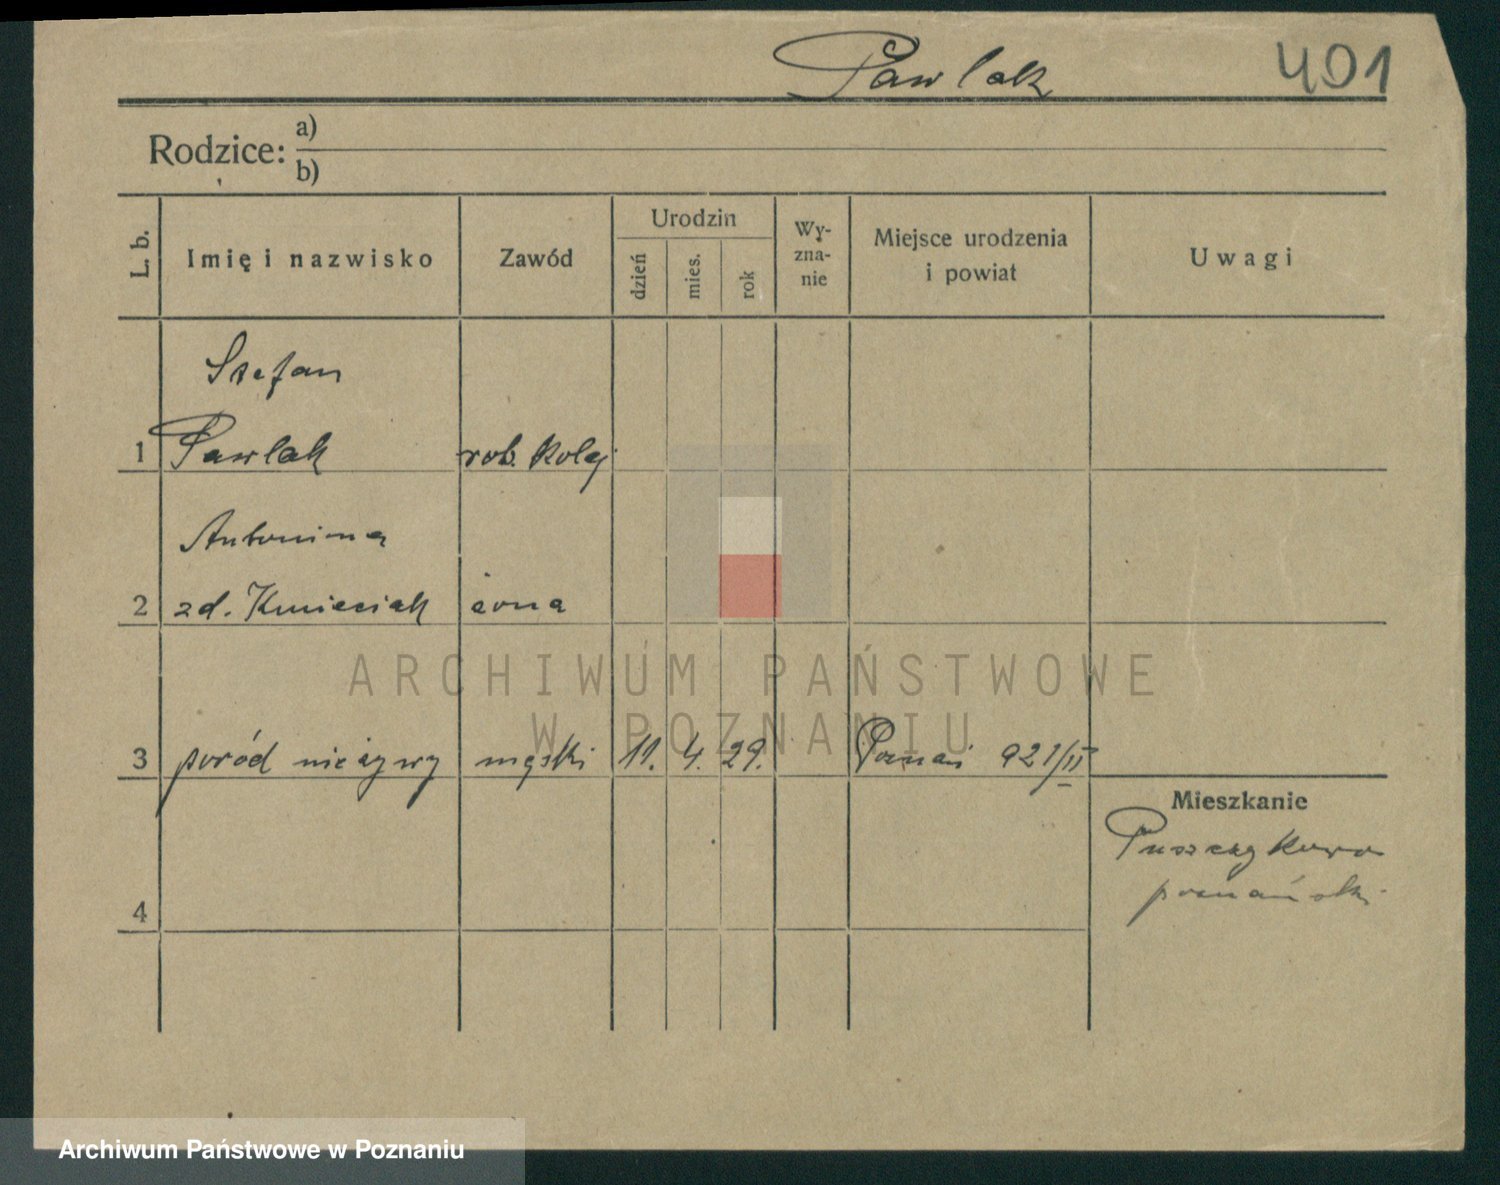 Pawlak 401
Rodzice: a)
b)
L. b. Imię i nazwisko Zawód Urodzin dzień mies. rok Wy-zna-nie Miejsce urodzenia i powiat Uwagi
Stefan
1 Pawlak rob. kolej.
Antonina
2 zd. Kmieciak żona
3 poród nieżywy męski 11. 4. 29. Poznań 921/II
Mieszkanie
Puszczykowo
poznański
4
ARCHIWUM PAŃSTWOWE
W POZNANIU
Archiwum Państwowe w Poznaniu